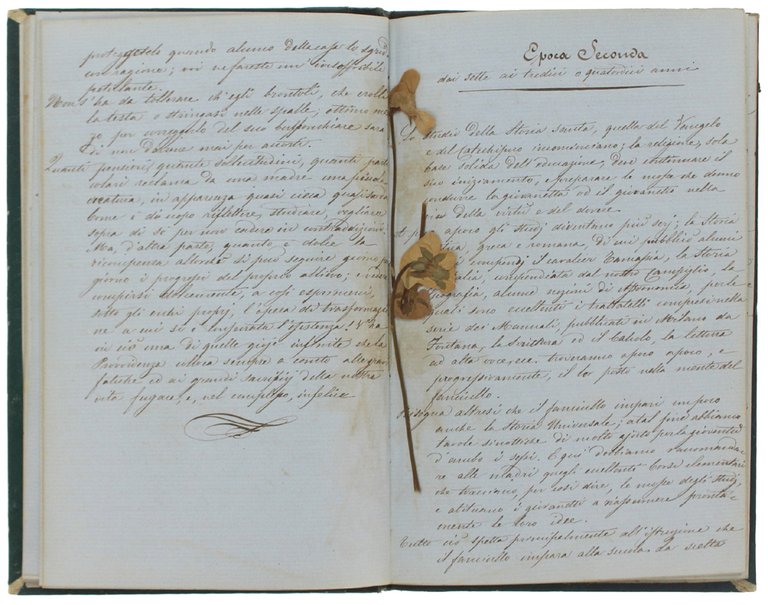 quando alunno della casa lo sgrida
con ragione; vi
petulante.
Non s'ha da tollerare ch'egli brontoli, che crolli
la testa o stringasi nelle spalle; ottimo mez
zo per correggerlo del suo sarà
di non
Quanti pensieri, quante sollecitudini, quanti par
ticolari reclama da una madre una piccola
creatura, in apparenza quasi cieca
Come è d'uopo riflettere, studiare, vegliare
sopra di se per non cadere in contraddizioni.
Ma, d'altra parte, quanto è dolce la
ricompensa allorché si può seguire giorno p
giorno i progressi del proprio allievo; e
sotto gli occhi proprj, l'opera di trasformazio
ne a cui si è consacrata l'esistenza! V'ha
in ciò una di quelle gioje infinite che la
Provvidenza colloca sempre a canto alle gran
fatiche ed ai grandi sacrifizj della nostra
vita fugace, e, nel complesso, infelice
Epoca Seconda
dai sette ai tredici o quatordici anni
Lo studio della Storia santa, quello del Vangelo
e del Catechismo incominciano; la religione, sola
base solida dell'educazione, deve continuare il
suo incivimento, e preparare le mosse che denno
condurre la giovanetta ed il giovanetto nella
via della virtù e del dovere.
A poco a poco gli studj diventano più serj; la Storia
greca e romana, di cui pubblicò alcuni
compendj il cavalier Tamaglia, la Storia
compendiata dal nostro Campiglio, la
geografia, alcune nozioni di Astronomia, per le
quali sono eccellenti i trattatelli compresi nella
serie dei Manuali, pubblicate in Milano da
Fontana, la scrittura ed il Calcolo, la lettura
ad alta voce ecc. troveranno a poco a poco, e
progressivamente, il lor posto nella mente del
fanciullo.
Bisogna altresì che il fanciullo impari un poco
anche la Storia Universale; a tal fine abbiamo
tavole sinottiche di molto ajuto per la gioventù
d'ambo i sessi. E qui dobbiamo raccomanda-
re alle madri quegli eccellenti Corsi elementari
che tracciano, per così dire, le mosse degli studj
e abituano i giovanetti a riassumere pronta-
mente le loro idee.
Tutto ciò spetta principalmente all'istruzione che
il fanciullo impara alla scuola. La scelta